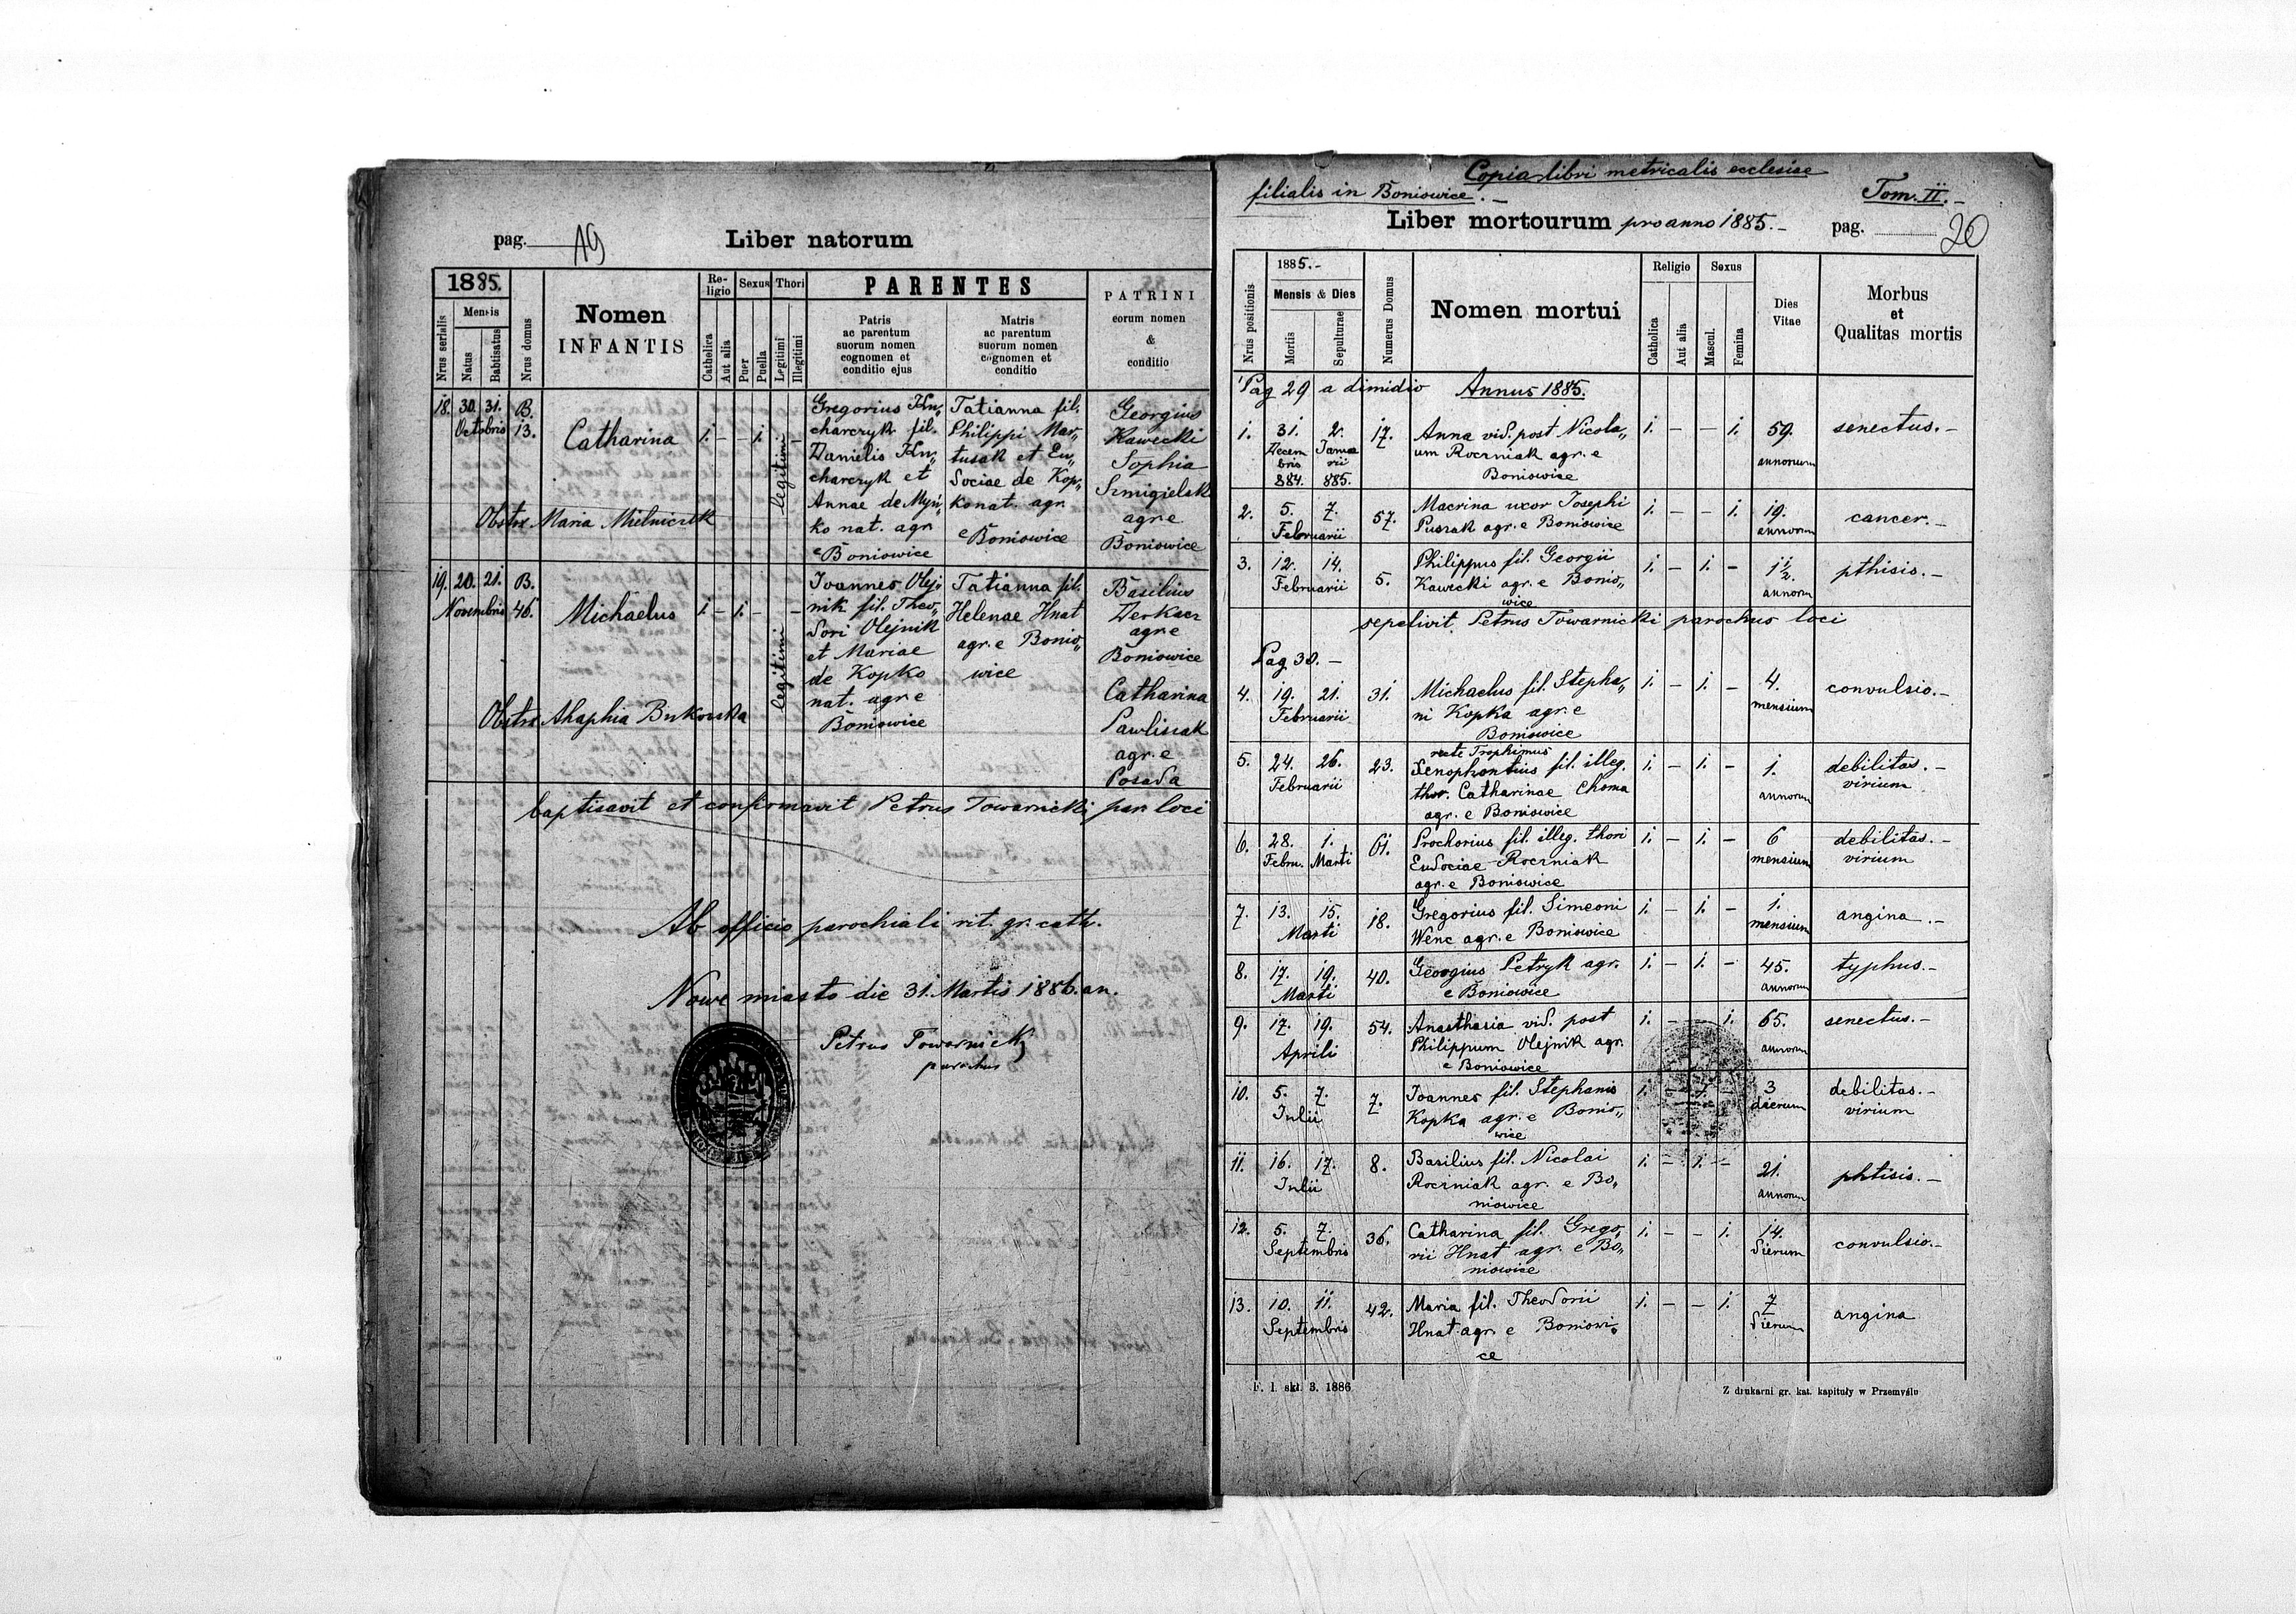 pag. 19
Liber natorum
1885.
Nrus serialis
Mensis
Natus
Babtisatus
Nrus domus
Nomen
INFANTIS
Religio
Catholica
Aut alia
Sexus
Puer
Puella
Thori
Legitimi
Illegitimi
PARENTES
Patris
ac parentum
suorum nomen
cognomen et
conditio ejus
Matris
ac parentum
suorum nomen
cognomen et
conditio
PATRINI
eorum nomen
&
conditio
18. 30. 31. B.
Octobris 13.
Catharina
1. – – 1. –
legitimi
Gregorius Ku„
charczyk fil.
Danielis Ku„
charczyk et
Annae de Myń„
ko nat. agr.
e Boniowice
Tatianna fil.
Philippi Mar„
tusak et Eu„
dociae de Kop„
ko nat. agr.
e Boniowice
Georgius
Kawecki
Sophia
Szmigielsk
agr. e
Boniowice
Obstx Maria Mielniczek
19. 20. 21. B.
Novembris 46.
Michaelus
1. – 1. – –
legitimi
Ioannes Olej„
nik fil. Theo„
dori Olejnik
et Mariae
de Kopko
nat. agr. e
Boniowice
Tatianna fil.
Helenae Hnat
agr. e Bonio„
wice
Basilius
Derkacz
agr. e
Boniowice
Catharina
Pawliszak
agr. e
Posada
Obstx Ahaphia Bukowska
baptisavit et confirmavit Petrus Towarnicki par. loci
Ab officio parochiali rit. gr. cath.
Nowe miasto die 31. Martis 1886. an.
Petrus Towarnicki
parochus
Copia libri metricalis ecclesiae
filialis in Boniowice. –
Tom. II. –
Liber mortourum pro anno 1885. –
pag. 20
Nrus positionis
1885. –
Mensis & Dies
Mortis
Sepulturae
Numerus Domus
Nomen mortui
Religio
Catholica
Aut alia
Sexus
Mascul.
Femina
Dies
Vitae
Morbus
et
Qualitas mortis
Pag 29 a dimidio Annus 1885.
1. 31. 2. 17. Anna vid. post Nicola„ 1. – – 1. 59. senectus. –
Decem Janua um Roczniak agr. e annorum
bris rii Boniowice
884. 885.
2. 5. 7. 57. Macrina uxor Josephi 1. – – 1. 19. cancer. –
Februarii Puszak agr. e Boniowice annorum
3. 12. 14. 5. Philippus fil. Georgii 1. – 1. – 1 1/2. pthisis. –
Februarii Kawecki agr. e Bonio„ annorum
wice
sepelivit Petrus Towarnicki parochus loci
Pag 30. –
4. 19. 21. 31. Michaelus fil. Stepha„ 1. – 1. – 4. convulsio. –
Februarii ni Kopka agr. e mensium
Boniowice
recte Trophimus
5. 24. 26. 23. Xenophontius fil. illeg. 1. – 1. – 1. debilitas. –
Februarii thor. Catharinae Choma annorum virium
agr. e Boniowice
6. 28. 1. 61. Prochorius fil. illeg. thori 1. – 1. – 6 debilitas. –
Febru. Marti Eudociae Roczniak mensium virium
agr. e Boniowice
7. 13. 15. 18. Gregorius fil. Simeoni 1. – 1. – 1. angina. –
Marti Wenc agr. e Boniowice mensium
8. 17. 19. 40. Georgius Petryk agr. 1. – 1. – 45. typhus. –
Marti e Boniowice annorum
9. 17. 19. 54. Anasthasia vid. post 1. – – 1. 65. senectus. –
Aprili Philippum Olejnik agr. annorum
e Boniowice
10. 5. 7. 7. Ioannes fil. Stephanis 1. – 1. – 3 debilitas. –
Iulii Kopka agr. e Bonio„ dierum virium
wice
11. 16. 17. 8. Basilius fil. Nicolai 1. – 1. – 21. phtisis. –
Iulii Roczniak agr. e Bo„ annorum
niowice
12. 5. 7. 36. Catharina fil. Grego„ 1. – – 1. 14. convulsio. –
Septembris rii Hnat agr. e Bo„ dierum
niowice
13. 10. 11. 42. Maria fil. Theodorii 1. – – 1. 7 angina
Septembris Hnat agr. e Boniowi„ dierum
ce
F. 1. skł. 3. 1886
Z drukarni gr. kat. kapituły w Przemyślu